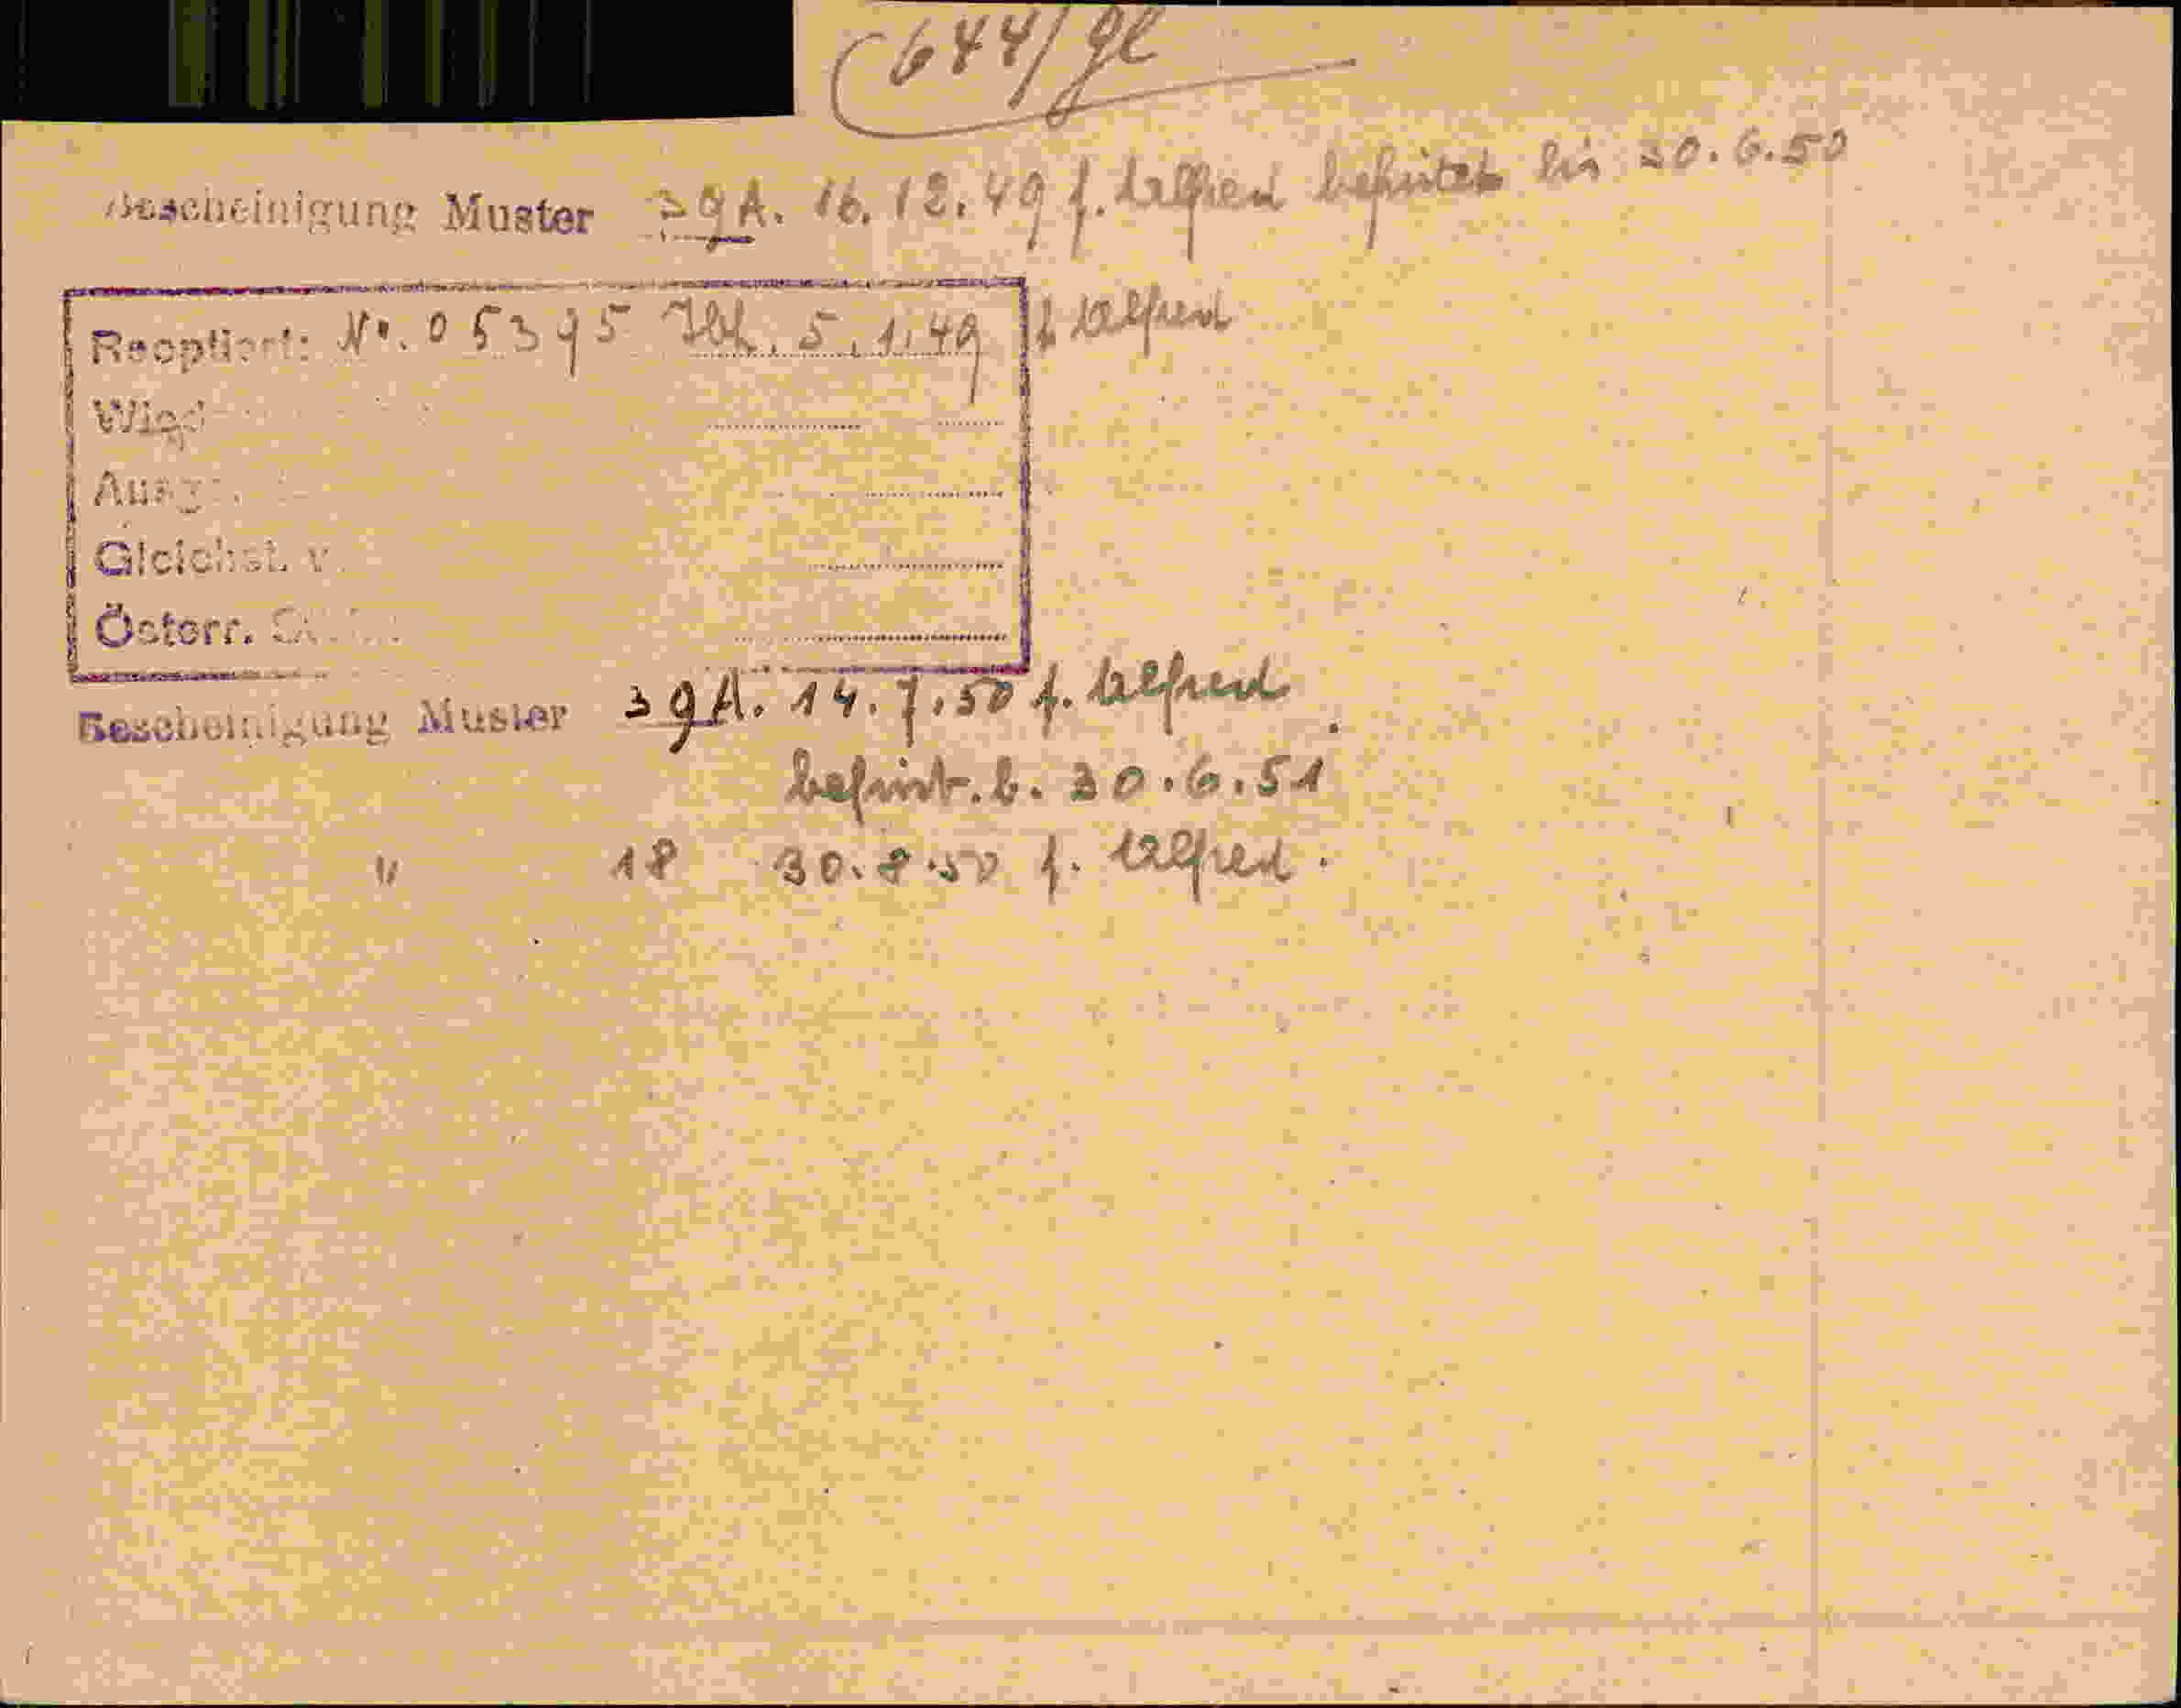 644/gl
Bescheinigung Muster 39A. 16.12.49 f. Alfred befristet bis 30.6.50
Reoptiert: Nr. 05395 Ibk. 5.1.49 f. Alfred
Wied
Ausg
Gleichst. v.
Österr.
Bescheinigung Muster 39A. 14.7.50 f. Alfred
befrist. b. 30.6.51
" 18 30.8.50 f. Alfred.